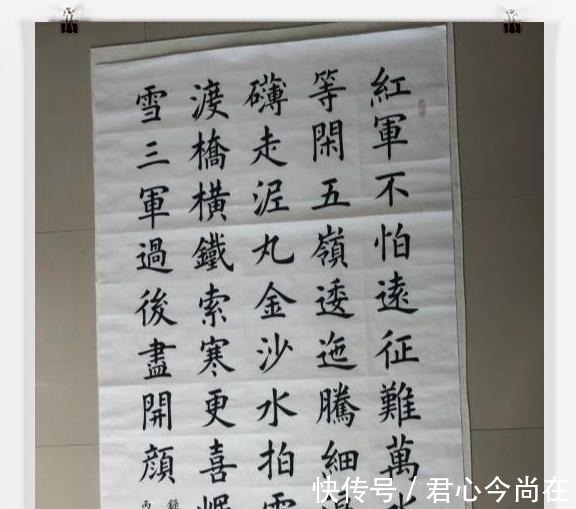 紅軍不怕遠征難萬水
等閑五嶺逶迤騰細浪
礴走泥丸金沙水拍雲
渡橋橫鐵索寒更喜岷
雪三軍過後盡開顏
快传号 / 君心今尚在